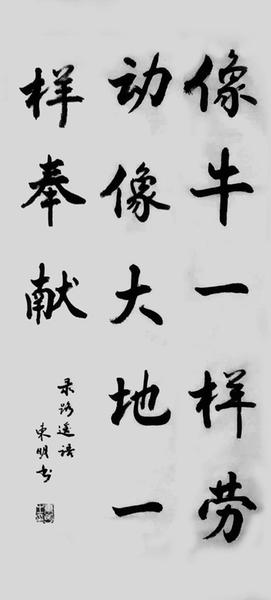 像牛一样劳
动像大地一
样奉献
录路遥语
东明书